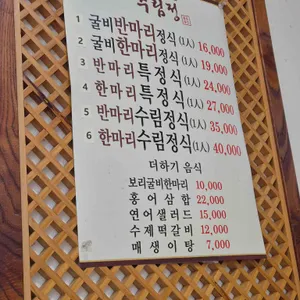 수림정
1 굴비반마리정식(1人) 16,000
2 굴비한마리정식(1人) 19,000
3 반마리특정식(1人) 24,000
4 한마리특정식(1人) 27,000
5 반마리수림정식(1人) 35,000
6 한마리수림정식(1人) 40,000
더하기 음식
보리굴비한마리 10,000
홍어삼합 22,000
연어샐러드 15,000
수제떡갈비 12,000
매생이탕 7,000